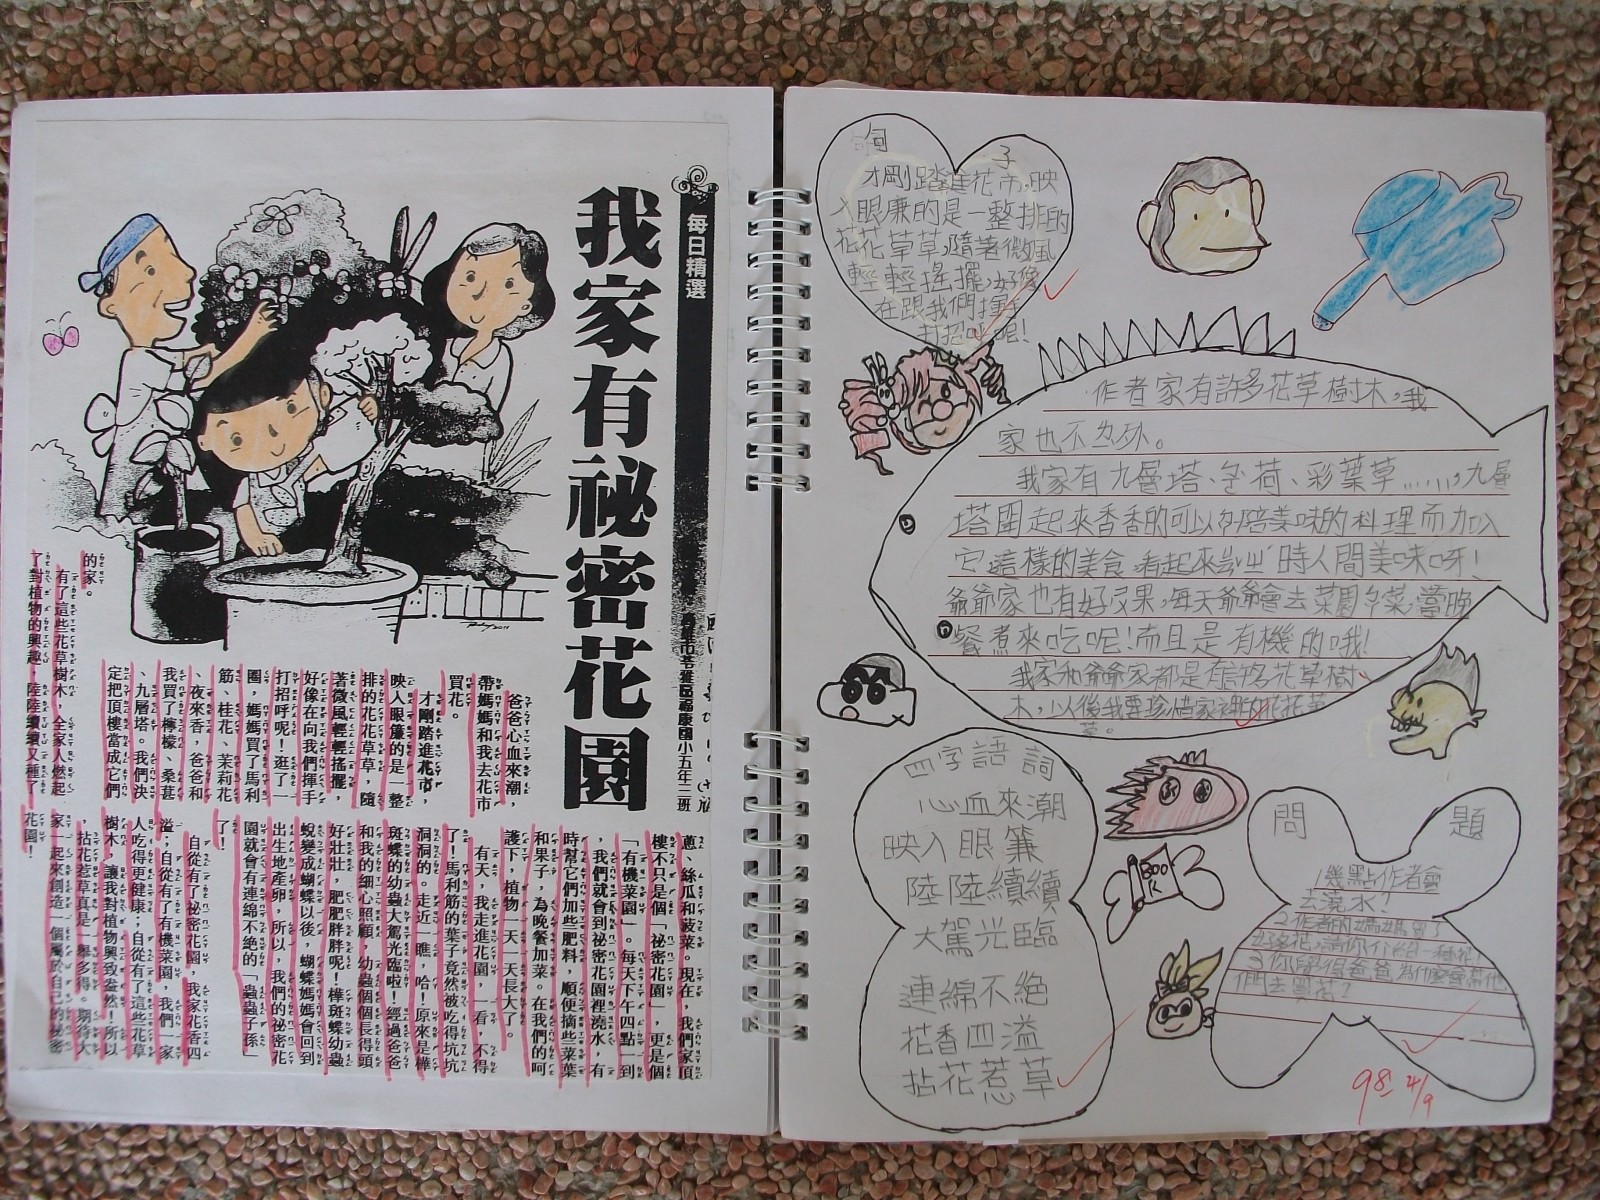 每日精選
我家有祕密花園
爸爸心血來潮，
帶媽媽和我去花市
買花。
才剛踏進花市，
映入眼簾的是一整
排的花花草草，隨
著微風輕輕搖擺，
好像在向我們揮手
打招呼呢！逛了一
圈，媽媽買了馬利
筋、桂花、茉莉花
、夜來香，爸爸和
我買了檸檬、桑葚
、九層塔。我們決
定把頂樓當成它們
的家。
有了這些花草樹木，全家人燃起
了對植物的興趣，陸陸續續又種了
蔥、絲瓜和菠菜。現在，我們家頂
樓不只是個「祕密花園」，更是個
「有機菜園」。每天下午四點一到
，我們就會到祕密花園裡澆水，有
時幫它們加些肥料，順便摘些菜葉
和果子，為晚餐加菜。在我們的呵
護下，植物一天一天長大了。
有天，我走進花園，一看，不得
了！馬利筋的葉子竟然被吃得坑坑
洞洞的。走近一瞧，哈！原來是樺
斑蝶的幼蟲大駕光臨啦！經過爸爸
和我的細心照顧，幼蟲個個長得頭
好壯壯，肥肥胖胖呢！樺斑蝶幼蟲
蛻變成蝴蝶以後，蝴蝶媽媽會回到
出生地產卵，所以，我們的祕密花
園就會有連綿不絕的「蟲蟲子孫」
了！
自從有了祕密花園，我家花香四
溢；自從有了有機菜園，我們一家
人吃得更健康；自從有了這些花草
樹木，讓我對植物興致盎然！所以
，拈花惹草真是一舉多得。期待大
家一起來創造一個屬於自己的祕密
花園！
句子
才剛踏進花市，映
入眼廉的是一整排的
花花草草，隨著微風
輕輕搖擺，好像
在跟我們揮手
打招呼呢！
作者家有許多花草樹木，我
家也不例外。
我家有九層塔、
荷、彩葉草……，九層
塔聞起來香香的可以
美味的料理而加入
它這樣的美食，看起來
時人間美味呀！
爺爺家也有好
果，每天爺爺會去菜園
菜，當晚
餐煮來吃呢！而且是有機的哦！
我家和爺爺家都是有許多花草樹
木，以後我要珍惜家裡的花花草
草。
四字語詞
心血來潮
映入眼簾
陸陸續續
大駕光臨
連綿不絕
花香四溢
拈花惹草
BOOK
問題
幾點作者會
去澆水？
2.作者的媽媽買了
好多花，請你介紹一種花！
3.你覺得爸爸為什麼會帶他
們去買花？
98 4/9